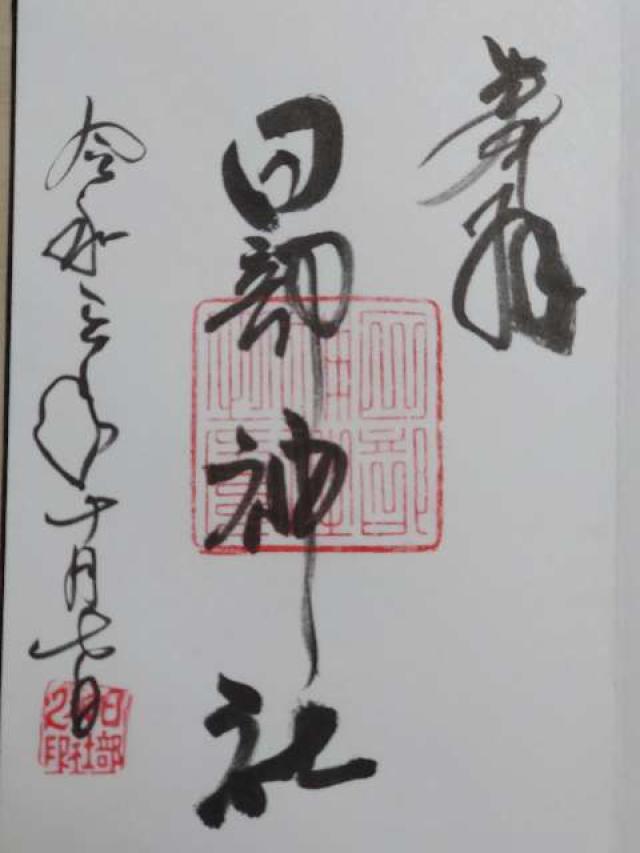 奉拝
日部神社
令和三年十月七日
日部神社之印